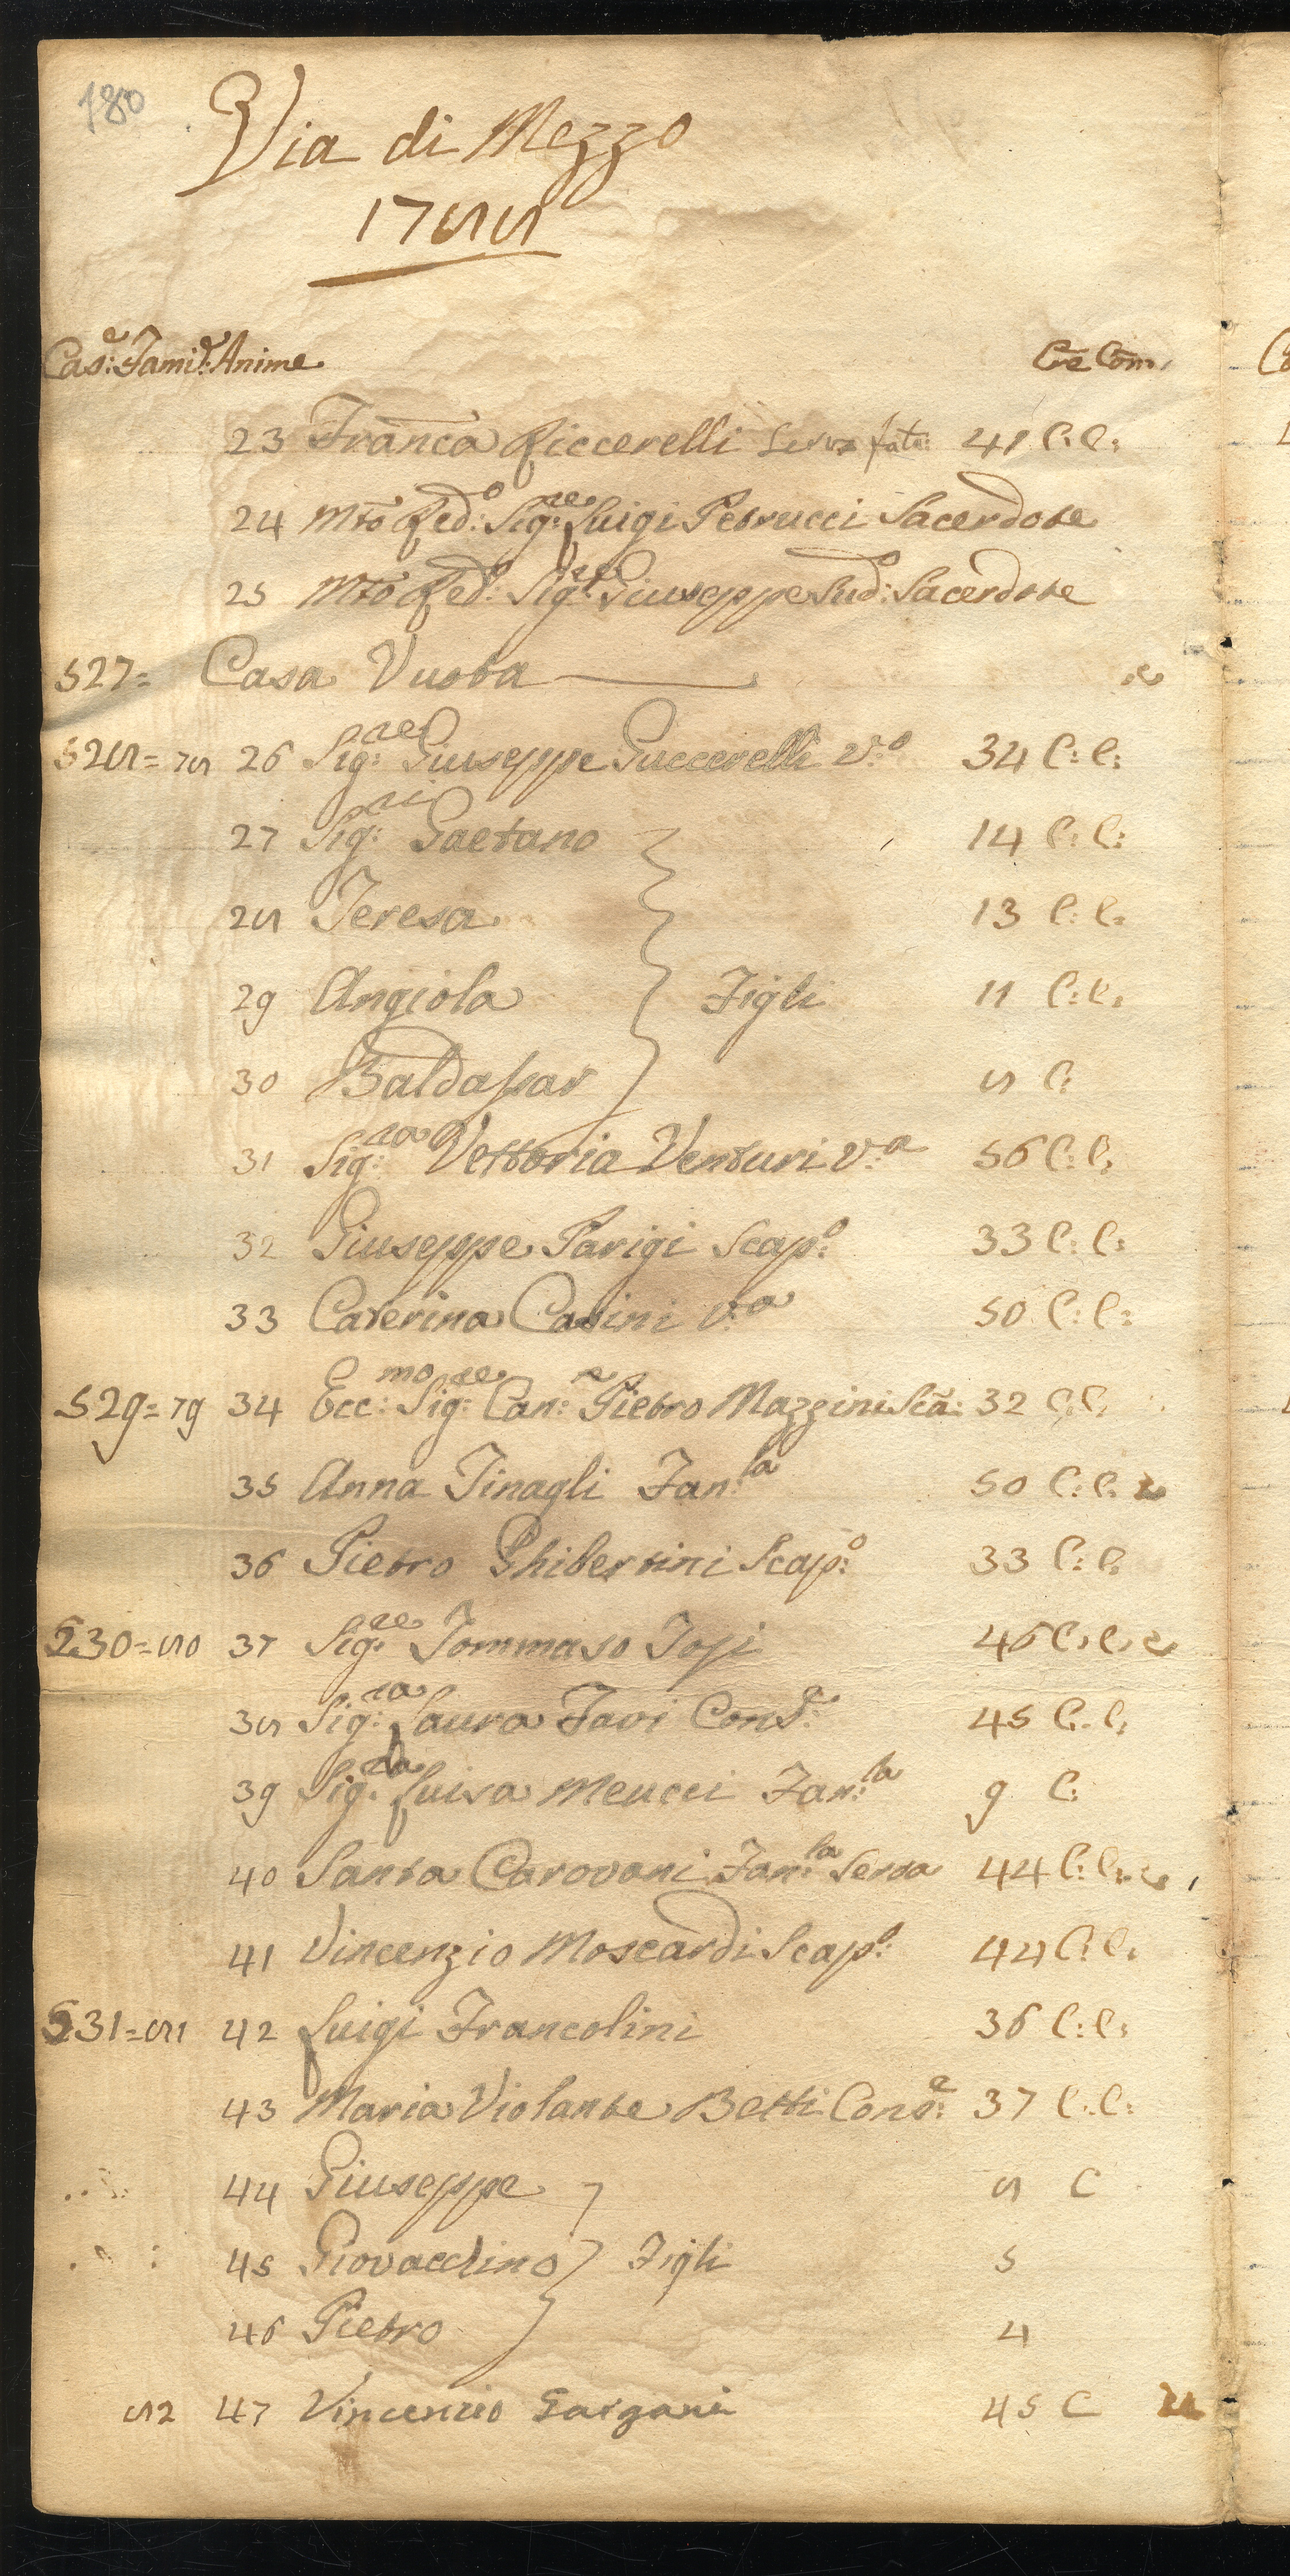 180
Via di Mezzo
1788
Cas:e Fami:e Anime Cre Com.
23 Franca Riccerelli Serva fatt: 41 C: C:
24 Mto Red:o Sig:re Luigi Petrucci Sacerdote
25 Mto Red:o Sig:re Giuseppe Sud:o Sacerdote
527= Casa Vuota
528= 78 26 Sig:re Giuseppe Puccerelli V:o 34 C: C:
27 Sig:ri Gaetano 14 C: C:
28 Teresa 13 C: C:
29 Angiola Figli 11 C: C:
30 Baldassar 8 C:
31 Sig:ra Vettoria Venturi V:a 56 C: C:
32 Giuseppe Parigi Scap:o 33 C: C:
33 Caterina Casini V:a 50 C: C:
529= 79 34 Ecc:mo Sig:re Can:e Pietro Mazzini Sca: 32 C: C:
35 Anna Tinagli Fan:la 50 C: C:
36 Pietro Ghibertini Scap:o 33 C: C:
530= 80 37 Sig:re Tommaso Tosi 46 C: C:
38 Sig:ra Laura Favi Cons:e 45 C: C:
39 Sig:ra Luisa Meucci Fan:la 9 C:
40 Santa Carovani Fan:la Serva 44 C: C:
41 Vincenzio Moscardi Scap:o 44 C: C:
531= 81 42 Luigi Francolini 36 C: C:
43 Maria Violante Betti Cons:e 37 C: C:
44 Giuseppe 8 C
45 Giovacchino Figli 5
46 Pietro 4
82 47 Vincenzio Gargani 45 C